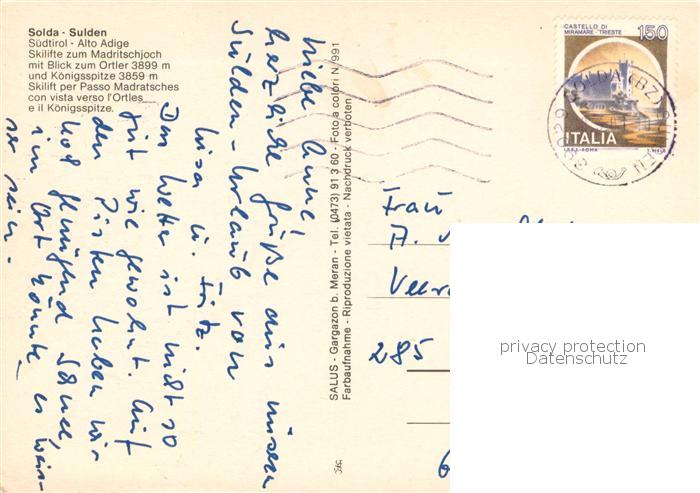 Solda · Sulden
Südtirol · Alto Adige
Skilifte zum Madritschjoch
mit Blick zum Ortler 3899 m
und Königsspitze 3859 m
Skilift per Passo Madratsches
con vista verso l'Ortles
e il Königsspitze.
Liebe Anne!
herzliche Grüße aus unserem
Sulden-Urlaub von
Lisa u. Fritz.
Das Wetter ist nicht so
gut wie gewohnt. Auf
den Pisten haben wir
genügend Schnee,
im Ort könnte es weis-
ser sein.
SALUS · Gargazon b. Meran - Tel. (0473) 91 3 60 - Foto a colori N. 991
Farbaufnahme - Riproduzione vietata - Nachdruck verboten
CASTELLO DI
MIRAMARE - TRIESTE
150
ITALIA
I.P.Z.S. - ROMA
39029 SOLDA (BZ) SULDEN
Frau
A.
285
privacy protection
Datenschutz